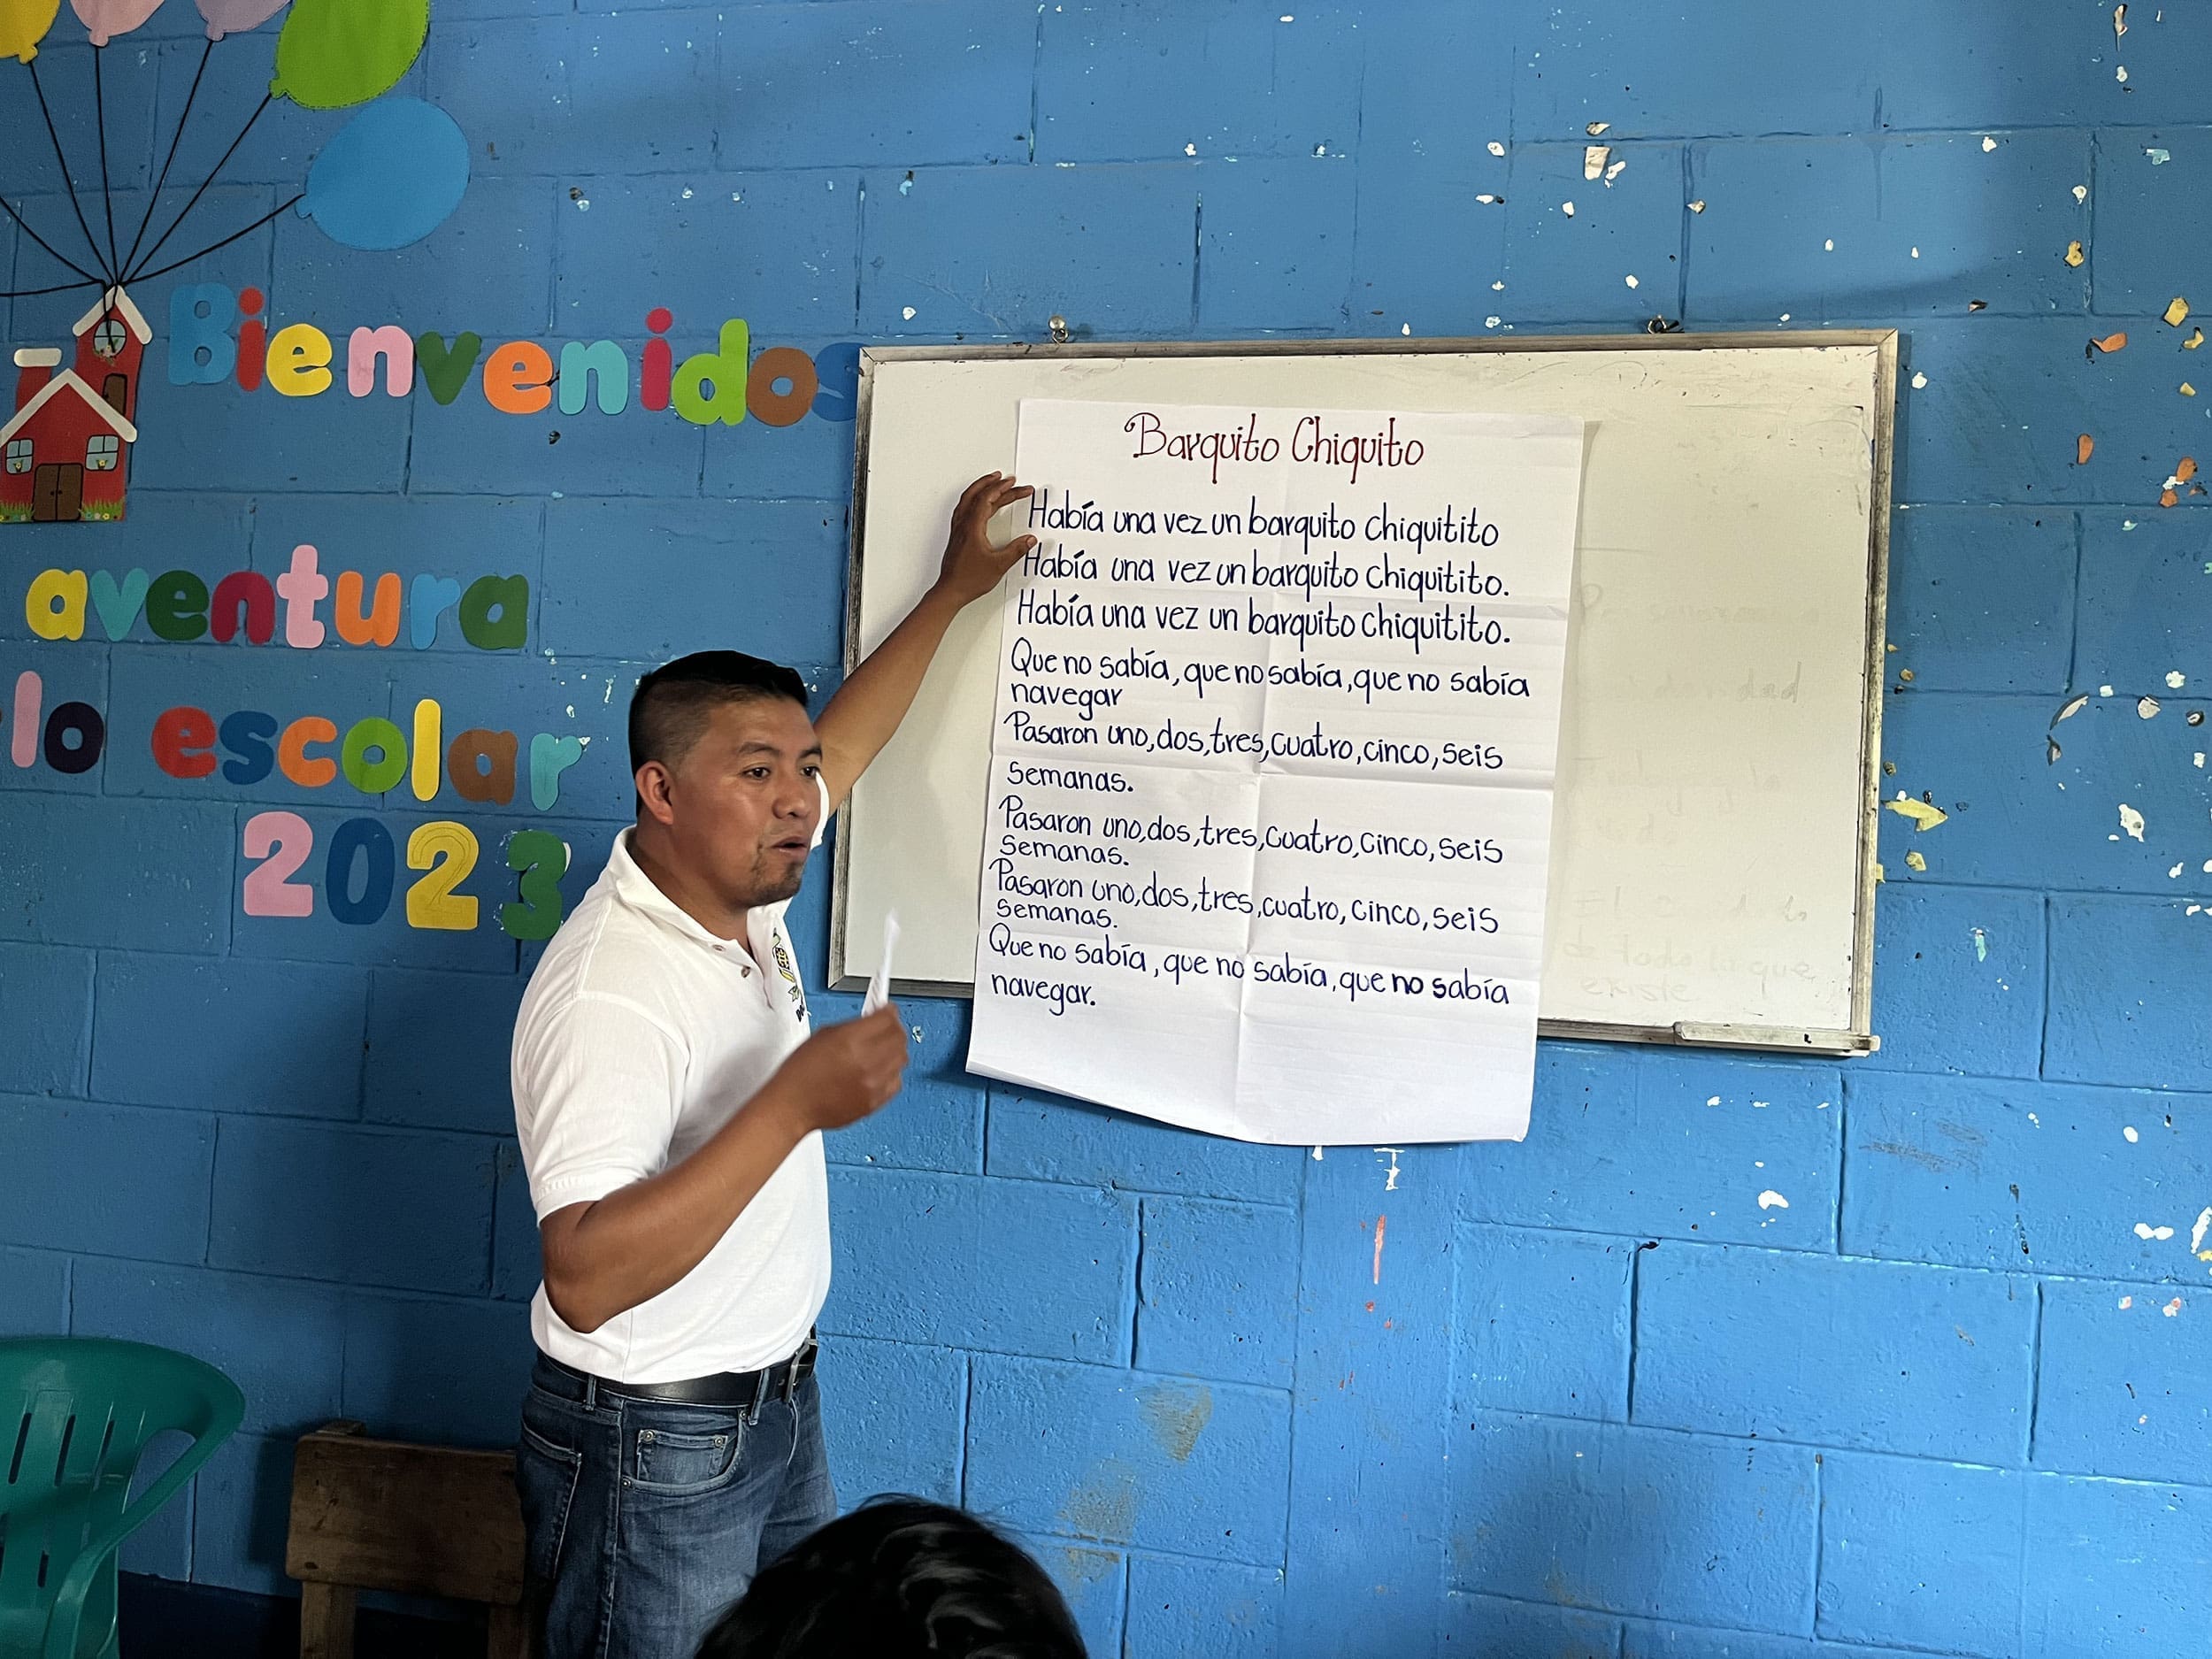 Bienvenidos
aventura
lo escolar
2023
Barquito Chiquito
Había una vez un barquito chiquitito
Había una vez un barquito chiquitito.
Había una vez un barquito chiquitito.
Que no sabía, que no sabía, que no sabía
navegar
Pasaron uno, dos, tres, cuatro, cinco, seis
semanas.
Pasaron uno, dos, tres, cuatro, cinco, seis
semanas.
Pasaron uno, dos, tres, cuatro, cinco, seis
semanas.
Que no sabía, que no sabía, que no sabía
navegar.
existe